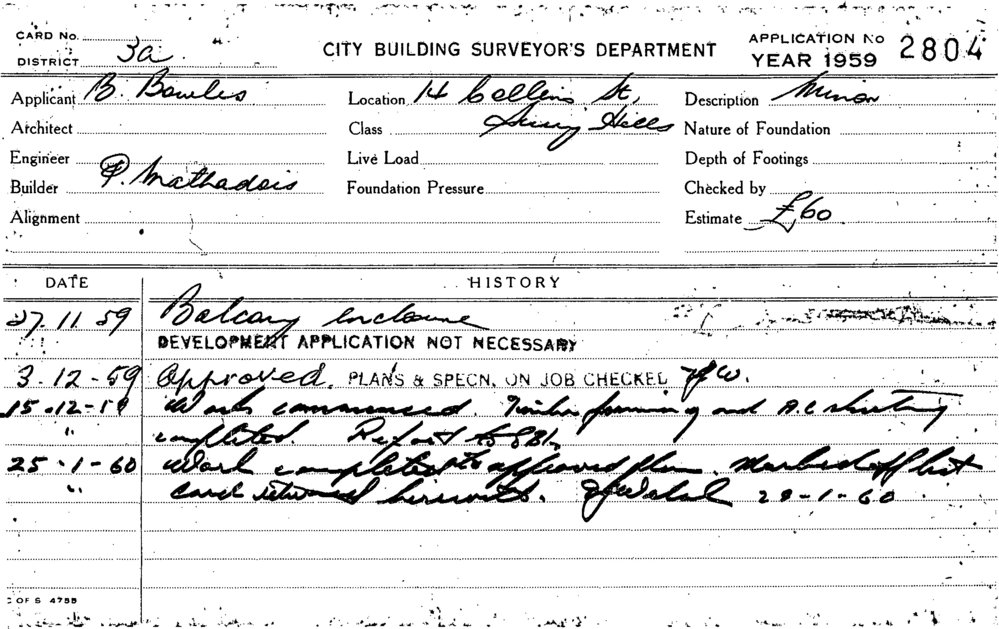 CARD No.
DISTRICT 3a
CITY BUILDING SURVEYOR'S DEPARTMENT
APPLICATION No 2804
YEAR 1959
Applicant B. Bowles
Location 14 Collins St,
Description Minor
Architect
Class Surry Hills
Nature of Foundation
Engineer
Live Load
Depth of Footings
Builder P. Mathadois
Foundation Pressure
Checked by
Alignment
Estimate £60
DATE HISTORY
27.11.59 Balcony enclosure
DEVELOPMENT APPLICATION NOT NECESSARY
3.12-59 Approved. PLANS & SPECN. ON JOB CHECKED
15.12-59 Work commenced. Timber framing and A.C sheeting
" completed. Report to
25.1-60 Work completed to approved plan. Marked off list
" card returned herewith. 29-1-60
C OF S 4755